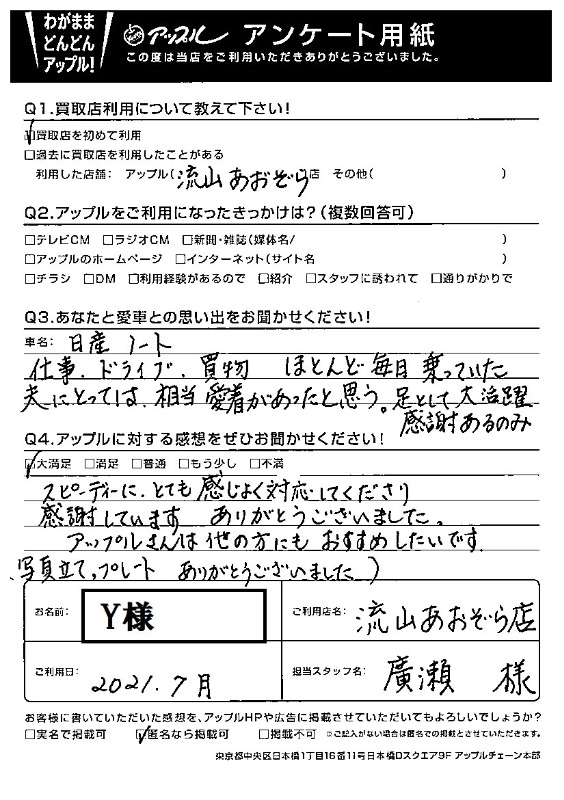 わがまま
どんどん
アップル!
アップル アンケート用紙
この度は当店をご利用いただきありがとうございました。
Q1.買取店利用について教えて下さい!
☑買取店を初めて利用
□過去に買取店を利用したことがある
利用した店舗: アップル(流山あおぞら店 その他( )
Q2.アップルをご利用になったきっかけは?(複数回答可)
□テレビCM □ラジオCM □新聞・雑誌(媒体名/ )
□アップルのホームページ □インターネット(サイト名 )
□チラシ □DM □利用経験があるので □紹介 □スタッフに誘われて □通りがかりで
Q3.あなたと愛車との思い出をお聞かせください!
車名: 日産 ノート
仕事、ドライブ、買物 ほとんど毎日乗っていた
夫にとっては、相当愛着があったと思う。足として大活躍
感謝あるのみ
Q4.アップルに対する感想をぜひお聞かせください!
☑大満足 □満足 □普通 □もう少し □不満
スピーディーに、とても感じよく対応してくださり
感謝しています ありがとうございました。
アップルさんは他の方にもおすすめしたいです。
写真立て、プレート ありがとうございました)
お名前: Y様
ご利用店名: 流山あおぞら店
ご利用日: 2021.7月
担当スタッフ名: 廣瀬 様
お客様に書いていただいた感想を、アップルHPや広告に掲載させていただいてもよろしいでしょうか?
□実名で掲載可 ☑匿名なら掲載可 □掲載不可 ※ご記入がない場合は匿名での掲載とさせていただきます。
東京都中央区日本橋1丁目16番11号日本橋Dスクエア9F アップルチェーン本部